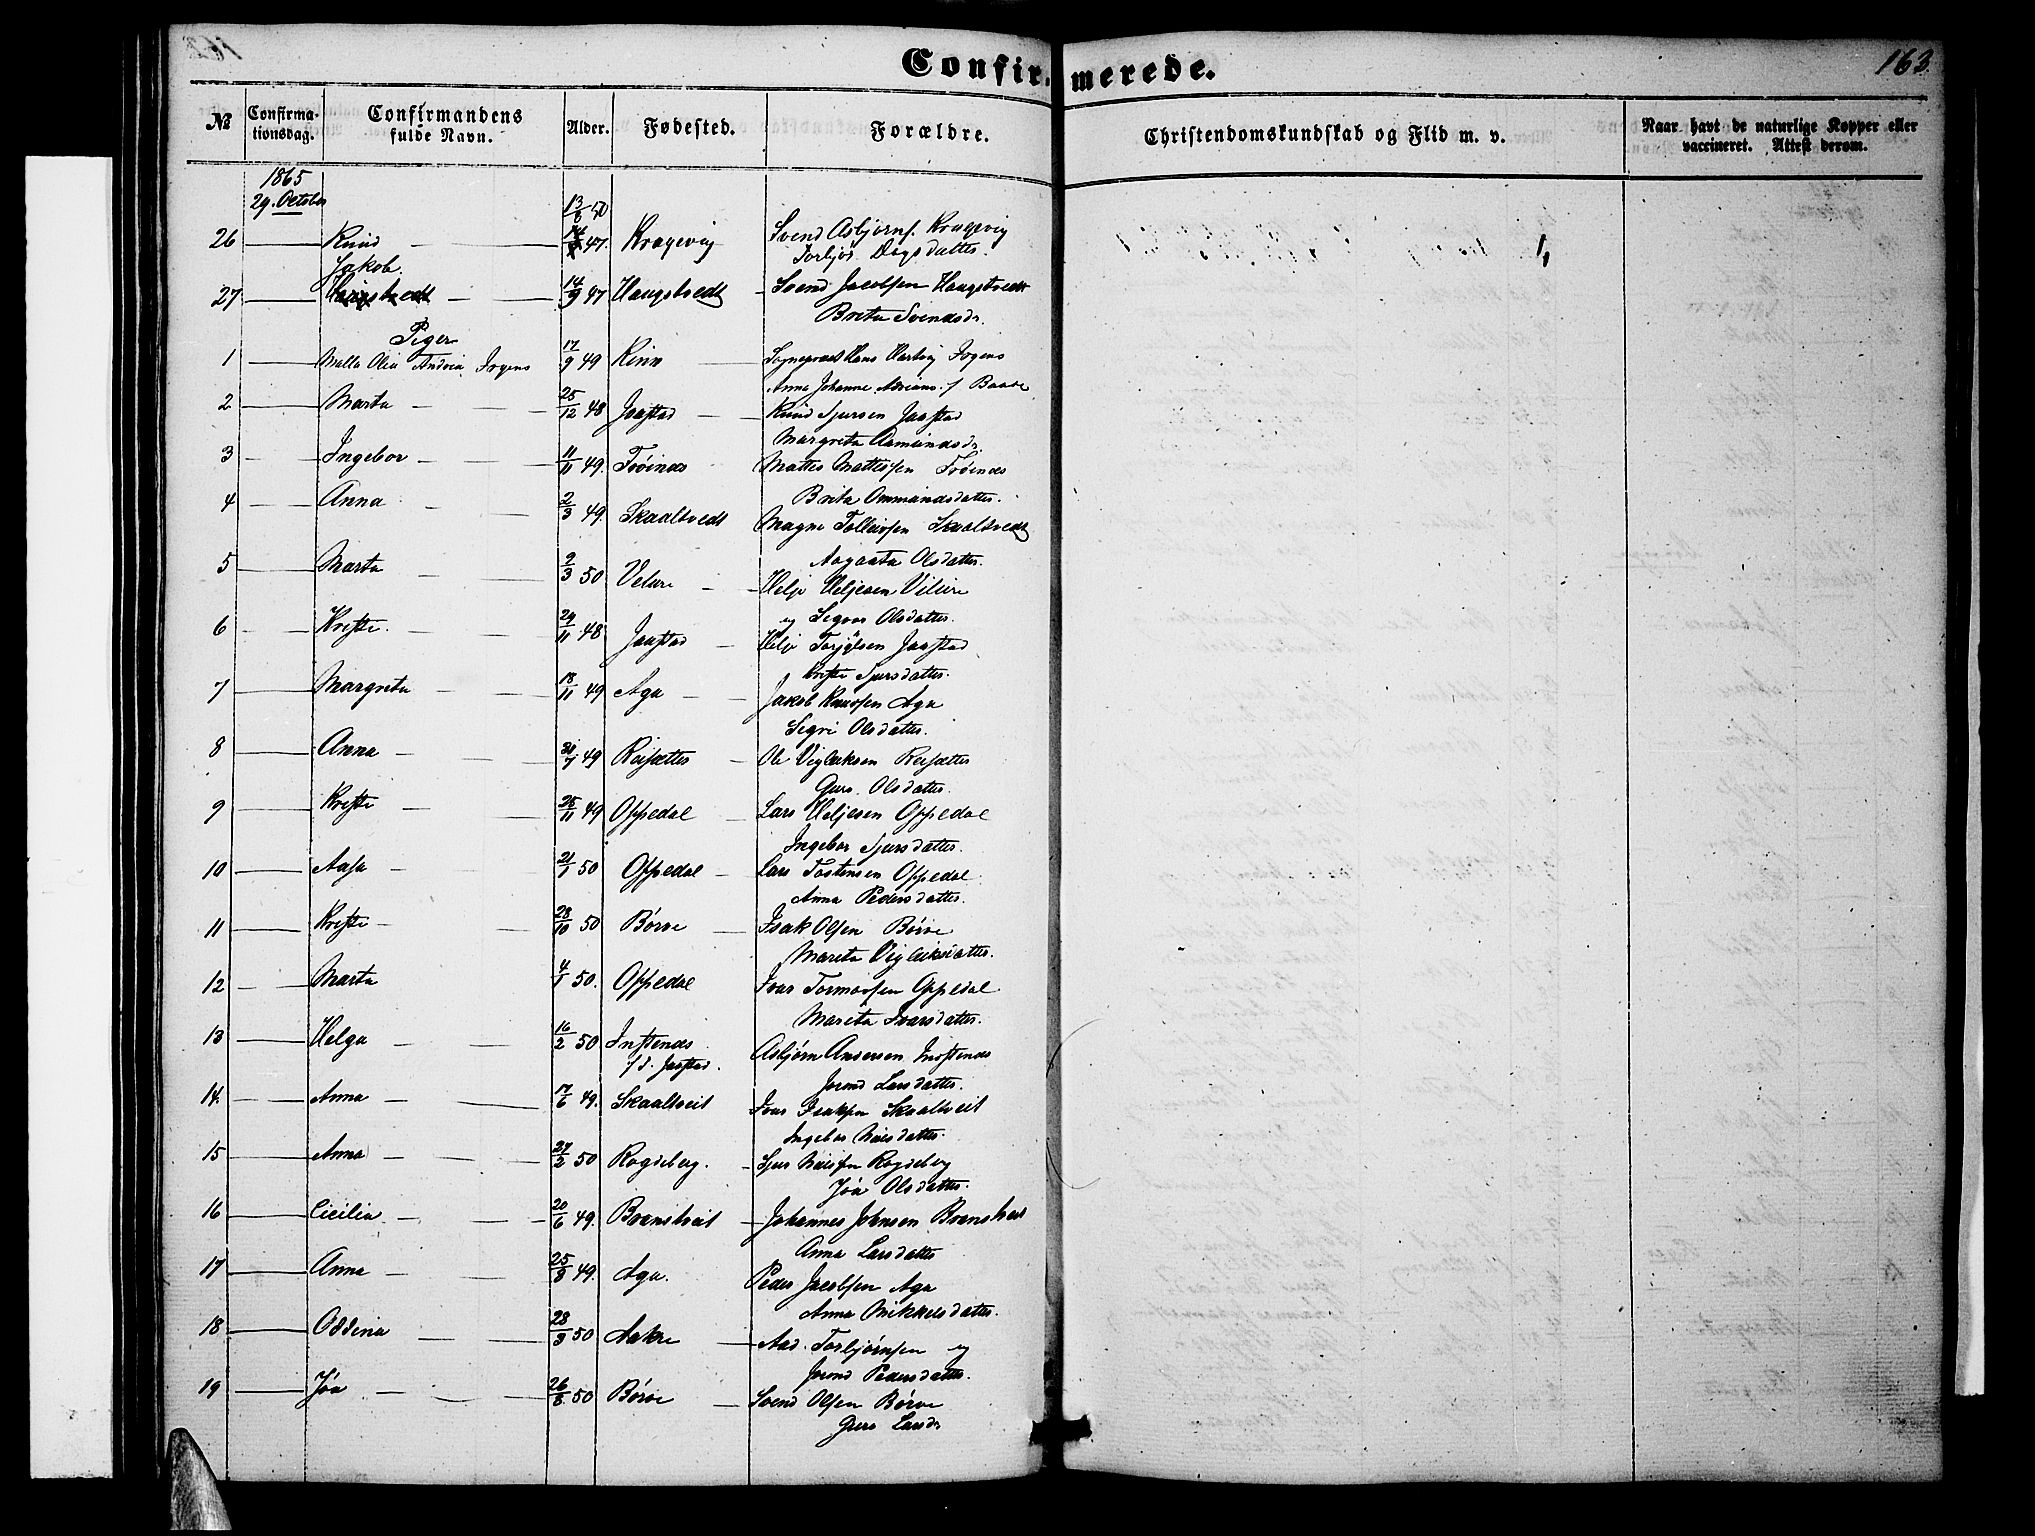 Confirmerede.
163
№ Confirmationsdag. Confirmandens fulde Navn. Alder. Fødested. Forældre. Christendomskundskab og Flid m. v. Naar havt de naturlige Kopper eller vaccineret. Attest derom.
1865
29. October
13/8 50
26 Knud 47. Kragevig Svend Asbjørns. Kragevig
Torbjør Dagsdatter.
Jakob
27 14/9 47 Haugstvedt Svend Jacobsen Haugstvedt
Brita Svendsdr.
Piger
1 Mella Olea Andrea Irgens 17/9 49 Kinn Sognepræst Hans Hartvig Irgens
Anna Johanne Adriane f
2 Marta 25/12 48 Jaastad Knud Sjursen Jaastad
Margreta Aamundsdr.
3 Ingebor 11/11 49. Trøinæs Mattes Mattessen Trøinæs
Brita Ommundsdatter.
4 Anna 2/3 49. Skaaltvedt Magne Tolleivsen Skaaltvedt
Aagaata Olsdatter.
5 Marta 2/3 50 Velure Helje Heljesen Vilure
og Segvor Olsdatter.
6 Kriste. 29/11 48 Jaastad Helje Torjelsen Jaastad
Kriste Sjursdatter.
7 Margreta 18/11 49 Aga Jakob Knudsen Aga
Segri Olsdatter.
8 Anna 49 Reisæter Ole Vigleiksen Reisæter
Guro. Olsdatter.
9 Kriste 25/11 49 Oppedal Lars Heljesen Oppedal
Ingebor Sjursdatter.
10 Aasa 21/1 50 Oppedal Lars Tostensen Oppedal
Anna Pedersdatter.
11 Kriste 28/10 50 Børve Isak Olsen Børve
Marita Vigleiksdatter.
12 Marta 4/1 50. Oppedal Ivar Tormodsen Oppedal
Marita Ivarsdatter.
13 Helga 16/2 50 Instenæs Asbjørn Andersen Instenæs
f. d. Jaastad. Jorond Larsdatter.
14. Anna 17/6 49. Skaaltveit Ivar Isaksen Skaaltveit
Ingebor Nilsdatter.
15 Anna 27/2 50 Rogdeberg. Sjur Nilssen Rogdeberg
Jøa Olsdatter.
16 Cicilia 20/6 49. Branstveit Johannes Johnsen Branstveit
Anna Larsdatter
17 Anna 25/8 49. Aga. Peder Jacobsen Aga
Anna Mikkelsdatter.
18 Oddina 23/3 50 Aakre Aad. Torbjørnsen og
Jorond Pedersdatter.
19 Jøa 26/8 50 Børve Svend Olsen Børve
Guro Larsdr